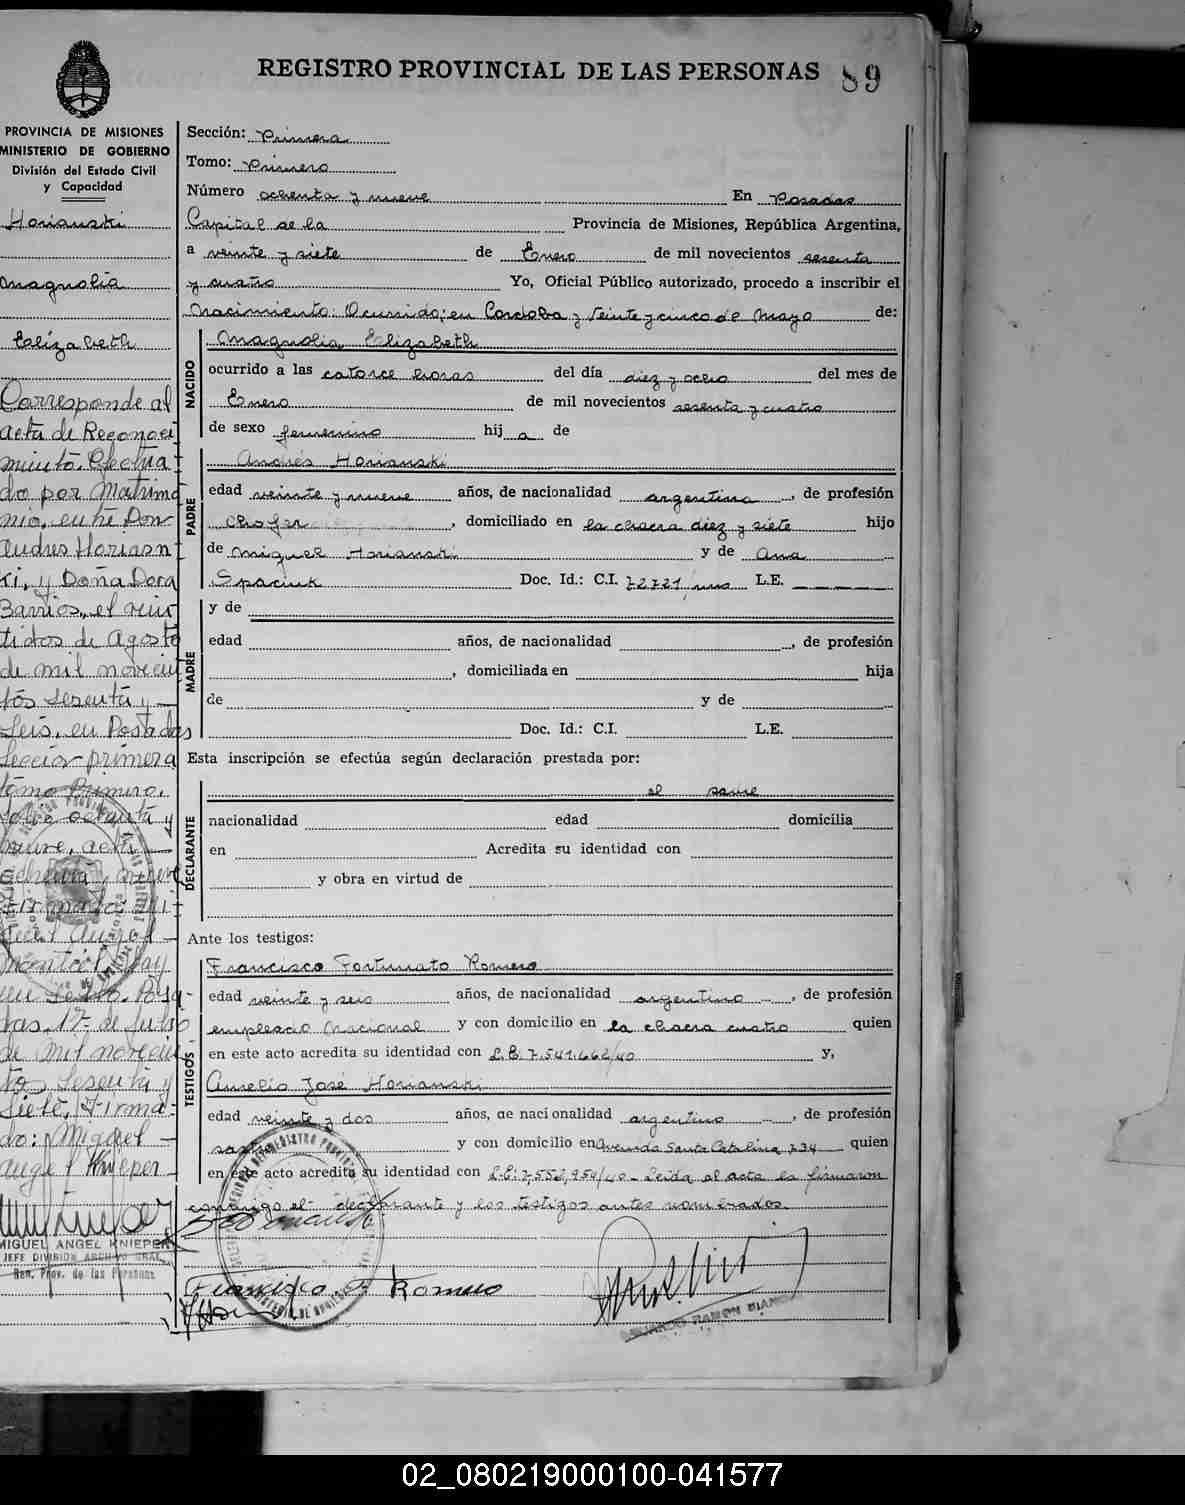 REGISTRO PROVINCIAL DE LAS PERSONAS
89
PROVINCIA DE MISIONES
MINISTERIO DE GOBIERNO
División del Estado Civil
y Capacidad
Horianski
Magnolia
Elizabeth
Corresponde al
acta de Reconoci
miento. Efectua
do por Matrimo
nio, en
Andres Horians
ki, y Doña Dora
Barrios, el vein
tidos de Agosto
de mil novecien
tos sesenta y
seis, en Posadas
Sección primera
tomo Primero,
folio ochenta y
nueve, acta
ochenta y nueve
Firmado: Mi
guel Angel
Posa-
das, 17 de Julio
de mil novecien
tos sesenta y
siete, Firma-
do: Miguel
Angel Knieper
MIGUEL ANGEL KNIEPER
JEFE DIVISION ARCHIVO GRAL.
Reg. Prov. de las Personas
Sección: Primera
Tomo: Primero
Número ochenta y nueve En Posadas
Capital de la Provincia de Misiones, República Argentina,
a veinte y siete de Enero de mil novecientos sesenta
y cuatro Yo, Oficial Público autorizado, procedo a inscribir el
Nacimiento: Ocurrido; en Cordoba y Veinte y cinco de Mayo de:
NACIDO
Magnolia Elizabeth
ocurrido a las catorce horas del día diez y ocho del mes de
Enero de mil novecientos sesenta y cuatro
de sexo femenino hij a de
PADRE
Andrés Horianski
edad veinte y nueve años, de nacionalidad argentina, de profesión
chofer, domiciliado en la chacra diez y siete hijo
de Miguel Horianski y de Ana
Spaciuk Doc. Id.: C.I. 72721/mns L.E.
MADRE
y de
edad años, de nacionalidad , de profesión
, domiciliada en hija
de y de
Doc. Id.: C.I. L.E.
Esta inscripción se efectúa según declaración prestada por:
DECLARANTE
el padre
nacionalidad edad domicilia
en Acredita su identidad con
y obra en virtud de
Ante los testigos:
TESTIGOS
Francisco Fortunato Romero
edad veinte y seis años, de nacionalidad argentino, de profesión
empleado Nacional y con domicilio en la chacra cuatro quien
en este acto acredita su identidad con L.E. 7.541.662/40 y,
Aurelio José Horianski
edad veinte y dos años, de nacionalidad argentino, de profesión
y con domicilio en Avenida Santa Catalina 734 quien
en este acto acredita su identidad con L.E. 7,552,954/40 - Leida el acta la firmaron
conmigo el declarante y los testigos antes nombrados.
Francisco F. Romero
02_080219000100-041577